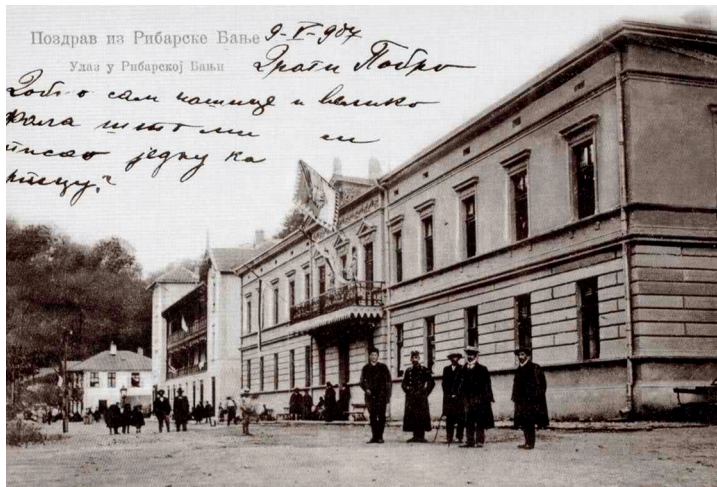 Поздрав из Рибарске Бање 9-V-907
Улаз у Рибарској Бањи Драги Побро
сам и велико
фала што ми си
писао једну ка